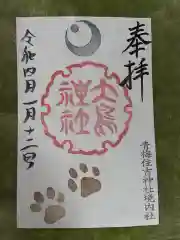 奉拝
大鳥
神社
青梅住吉神社境内社
令和四年一月十二日